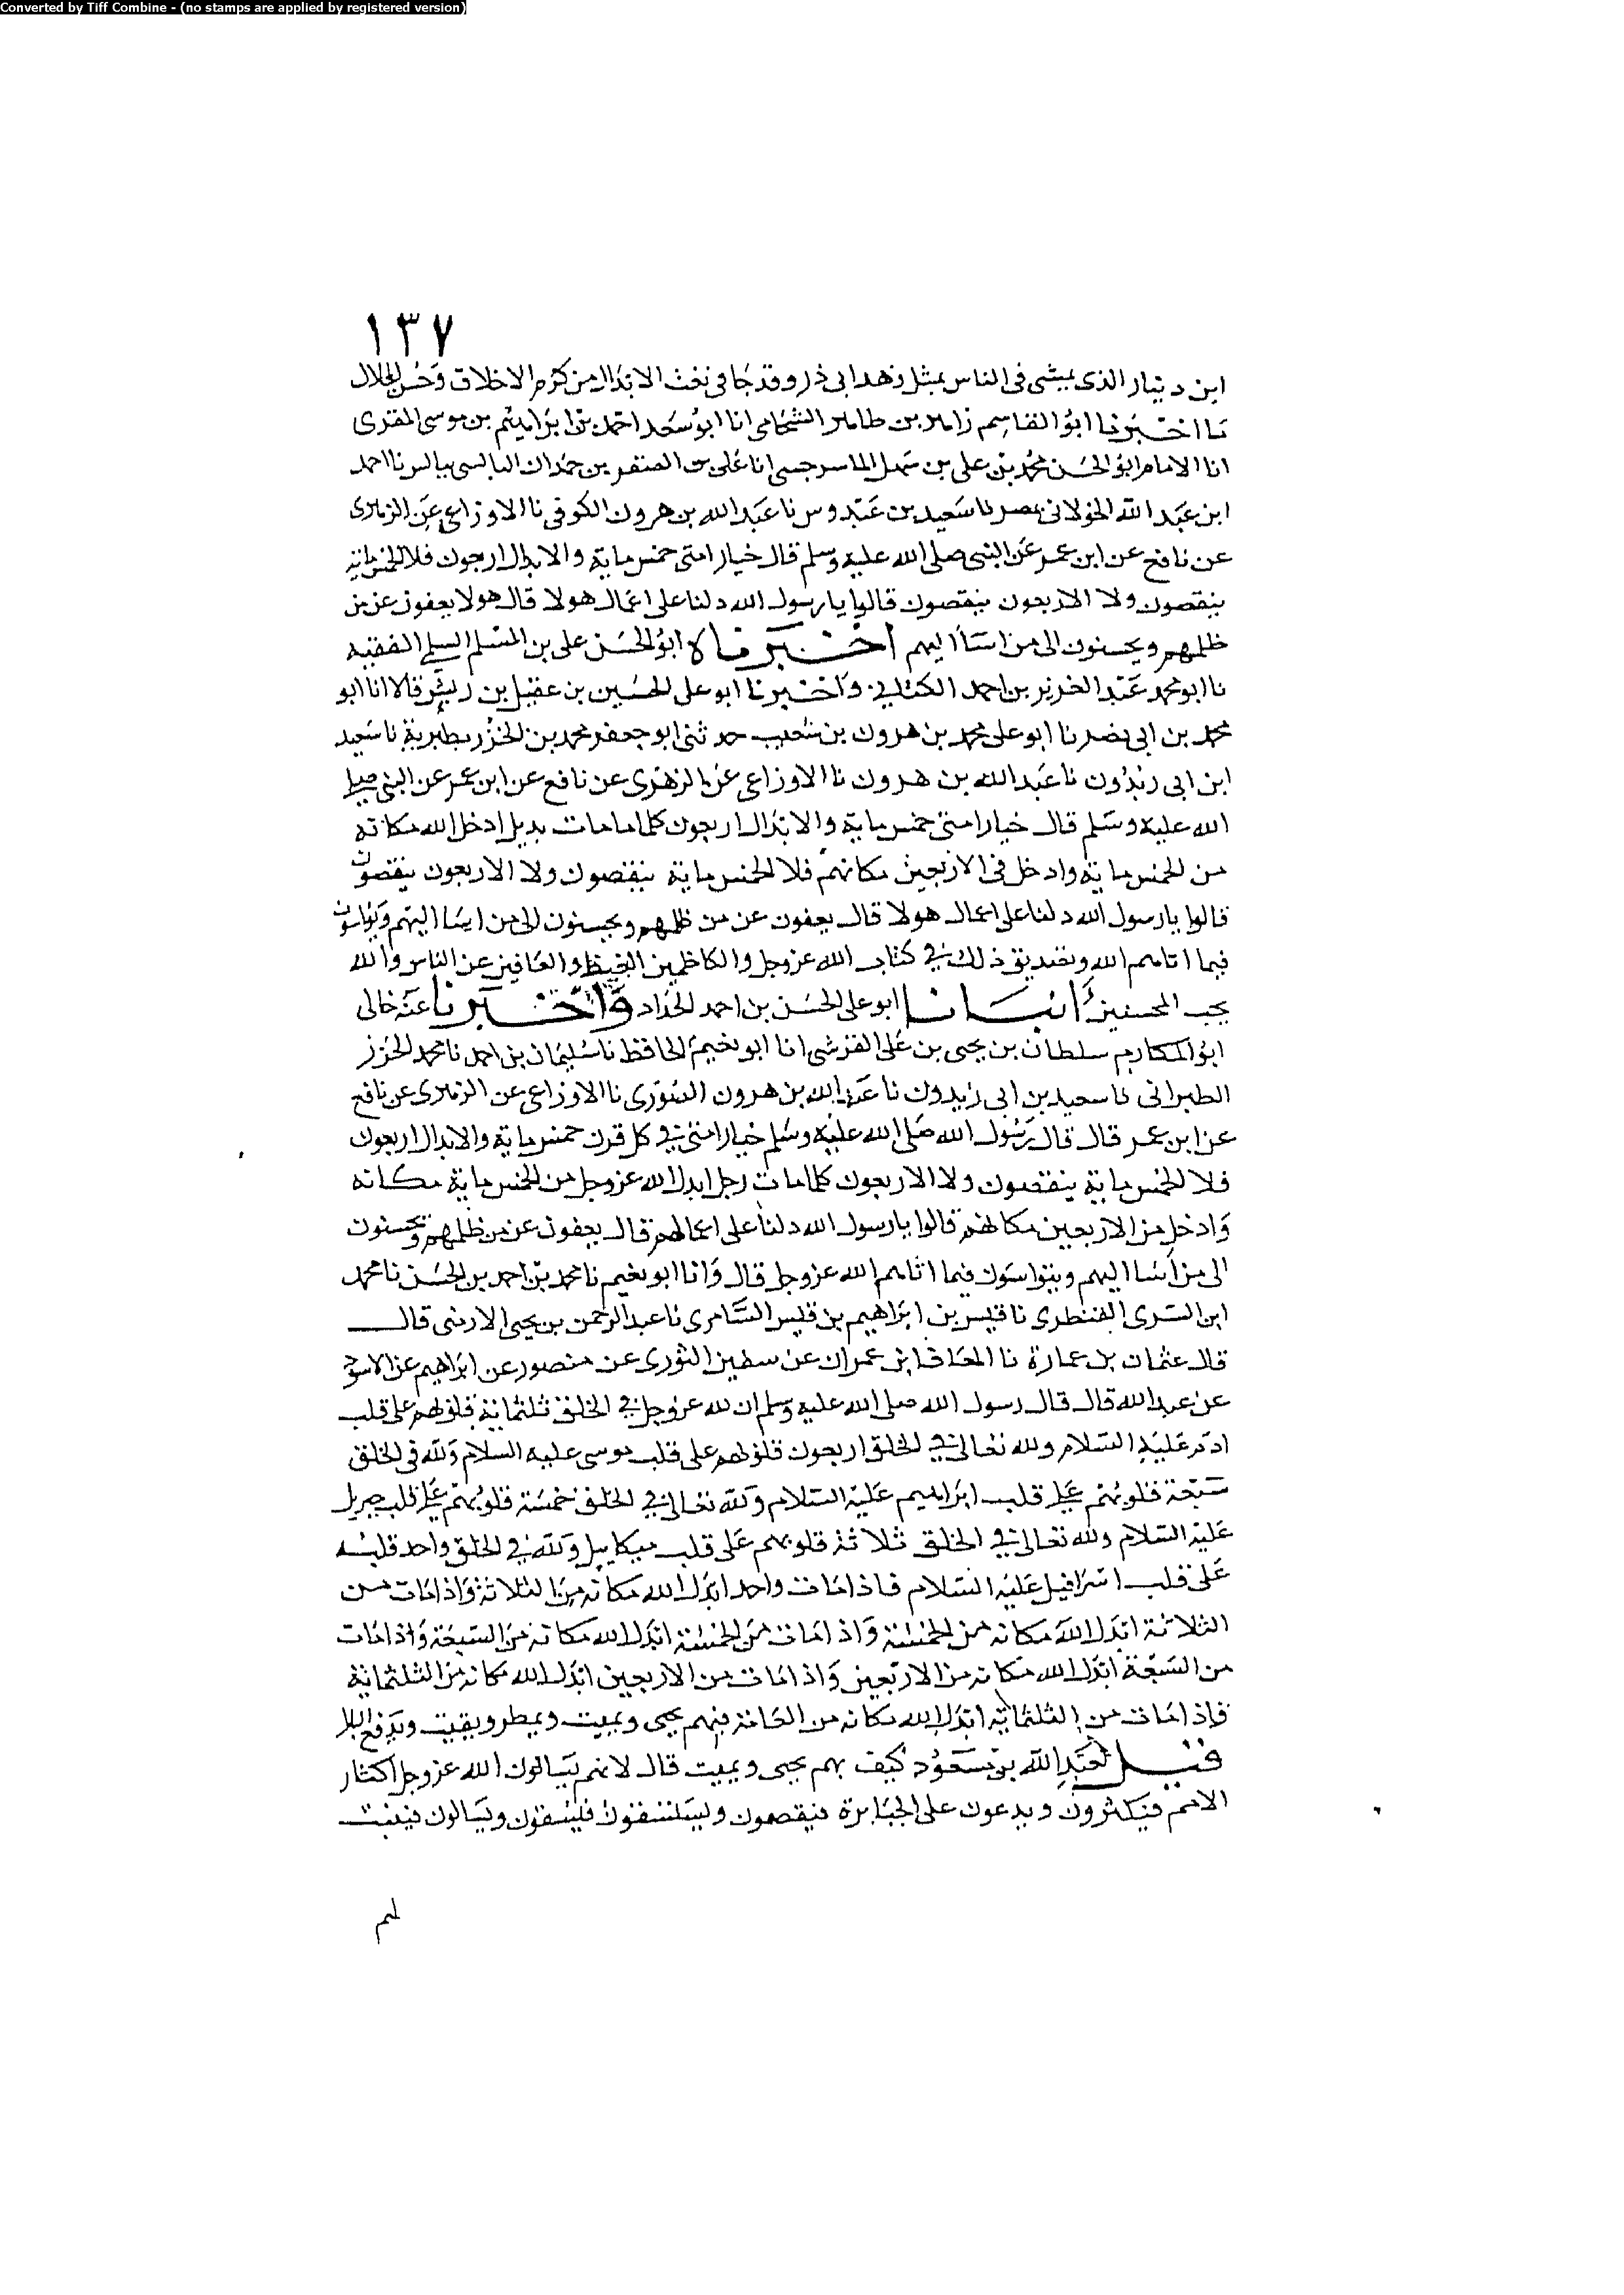 Converted by Tiff Combine - (no stamps are applied by registered version)
١٣٧
ابن دينار الذي يمشي في الناس بمثل زهد ابي ذر وقد جا في نعت الابدال من كرم الاخلاق وحسن الخلال
ما اخبرنا ابو القاسم زاهر بن طاهر الشحامي انا ابو سعد احمد بن ابراهيم بن موسى المقرى
انا الامام ابو الحسن محمد بن علي بن سهل الماسرجسي انا علي بن الصقر بن حمدان البالسي ببالس نا احمد
ابن عبد الله الخولاني بمصر نا سعيد بن عبدوس نا عبد الله بن هرون الكوفي نا الاوزاعي عن الزهرى
عن نافع عن ابن عمر عن النبي صلى الله عليه وسلم قال خيار امتي خمس ماية والابدال اربعون فلا الخمس ماية
ينقصون ولا الاربعون ينقصون قالوا يا رسول الله دلنا على اعمال هولا قال هولا يعفون عن من
ظلمهم ويحسنون الى من اسا اليهم اخبرنا ابو الحسن علي بن المسلم السلمي الفقيه
نا ابو محمد عبد العزيز بن احمد الكتاني واخبرنا ابو علي الحسين بن عقيل بن ريش قالا انا ابو
محمد بن ابي نصر نا ابو علي محمد بن هرون بن شعيب حدثني ابو جعفر محمد بن الخزر بطبرية نا سعيد
ابن ابي زيدون نا عبد الله بن هرون نا الاوزاعي عن الزهرى عن نافع عن ابن عمر عن النبي صلى
الله عليه وسلم قال خيار امتي خمس ماية والابدال اربعون كلما مات بديل ادخل الله مكانه
من الخمس ماية وادخل في الاربعين مكانهم فلا الخمس ماية ينقصون ولا الاربعون ينقصون
قالوا يا رسول الله دلنا على اعمال هولا قال يعفون عن من ظلمهم ويحسنون الى من اسا اليهم ويواسون
فيما اتاهم الله وتصديق ذلك في كتاب الله عز وجل والكاظمين الغيظ والعافين عن الناس والله
يحب المحسنين انبانا ابو علي الحسن بن احمد الحداد واخبرنا عنه خالي
ابو المكارم سلطان بن يحيى بن علي القرشي انا ابو نعيم الحافظ نا سليمان بن احمد نا محمد الخزر
الطبراني نا سعيد بن ابي زيدون نا عبد الله بن هرون الصوري نا الاوزاعي عن الزهرى عن نافع
عن ابن عمر قال قال رسول الله صلى الله عليه وسلم خيار امتي في كل قرن خمس ماية والابدال اربعون
فلا الخمس ماية ينقصون ولا الاربعون كلما مات رجل ابدل الله عز وجل من الخمس ماية مكانه
وادخل من الاربعين مكانهم قالوا يا رسول الله دلنا على اعمالهم قال يعفون عن من ظلمهم ويحسنون
الى من اسا اليهم ويتواسون فيما اتاهم الله عز وجل قال وانا ابو نعيم نا محمد بن احمد بن الحسن نا محمد
ابن السرى القنطرى نا قيس بن ابراهيم بن قيس السامرى نا عبد الرحمن بن يحيى الارمني قال
قال عثمان بن عمارة نا المعافا بن عمران عن سفين الثورى عن منصور عن ابراهيم عن الاسود
عن عبد الله قال قال رسول الله صلى الله عليه وسلم ان لله عز وجل في الخلق ثلثماية قلوبهم على قلب
ادم عليه السلام ولله تعالى في الخلق اربعون قلوبهم على قلب موسى عليه السلام ولله في الخلق
سبعة قلوبهم على قلب ابراهيم عليه السلام ولله تعالى في الخلق خمسة قلوبهم على قلب جبريل
عليه السلام ولله تعالى في الخلق ثلاثة قلوبهم على قلب ميكاييل ولله في الخلق واحد قلبه
على قلب اسرافيل عليه السلام فاذا مات واحد ابدل الله مكانه من الثلاثة واذا مات من
الثلاثة ابدل الله مكانه من الخمسة واذا مات من الخمسة ابدل الله مكانه من السبعة واذا مات
من السبعة ابدل الله مكانه من الاربعين واذا مات من الاربعين ابدل الله مكانه من الثلثماية
فاذا مات من الثلثماية ابدل الله مكانه من العامة فبهم يحيى ويميت ويمطر وينبت ويدفع البلا
قيل لعبد الله بن مسعود كيف بهم يحيى ويميت قال لانهم يسالون الله عز وجل اكثار
الامم فيكثرون ويدعون على الجبابرة فيقصمون ويستسقون فيسقون ويسالون فينبت
لهم